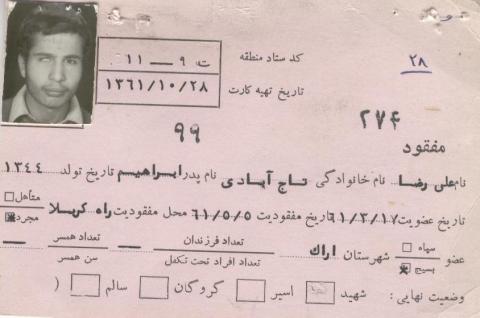 کد ستاد منطقه ت ۹ ـ ۱۱
۲۸
تاریخ تهیه کارت ۱۳۶۱/۱۰/۲۸
۲۷۴
۹۹
مفقود
نام علی رضا نام خانوادگی تاج آبادی نام پدر ابراهیم تاریخ تولد ۱۳۴۴
تاریخ عضویت ۶۱/۳/۱۷ تاریخ مفقودیت ۶۱/۵/۵ محل مفقودیت راه کربلا متأهل مجرد
عضو سپاه بسیج شهرستان اراک تعداد فرزندان ـ تعداد همسر ـ
تعداد افراد تحت تکفل سن همسر
وضعیت نهایی: شهید اسیر گروگان سالم )